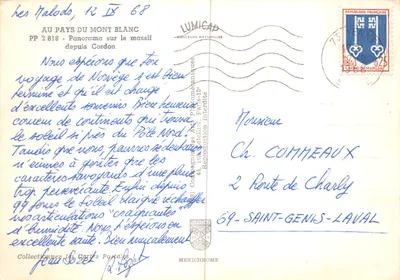 Les Malods, 12 IX 68
AU PAYS DU MONT BLANC
PP 2 818 - Panorama sur le massif
depuis Cordon
Nous espérons que ton
voyage de Norvège s'est bien
terminé et qu'il est chargé
d'excellents souvenirs. Bien heureux
coureur de continents qui trouve
le soleil si près du Pôle Nord.
Tandis que nous, pauvres sédentaires
n'avons à goûter que les
caractères savoyards d'une pluie
trop persévérante. Enfin depuis
le soleil réchauffe
nos articulations "craignantes"
d'humidité. Nous t'espérons en
excellente santé. Bien amicalement
LUMICAP
RÉPUBLIQUE FRANÇAISE
0,25
Monsieur
Ch. COMMEAUX
2 Route de Charly
69-SAINT-GENIS-LAVAL
MEXICHROME